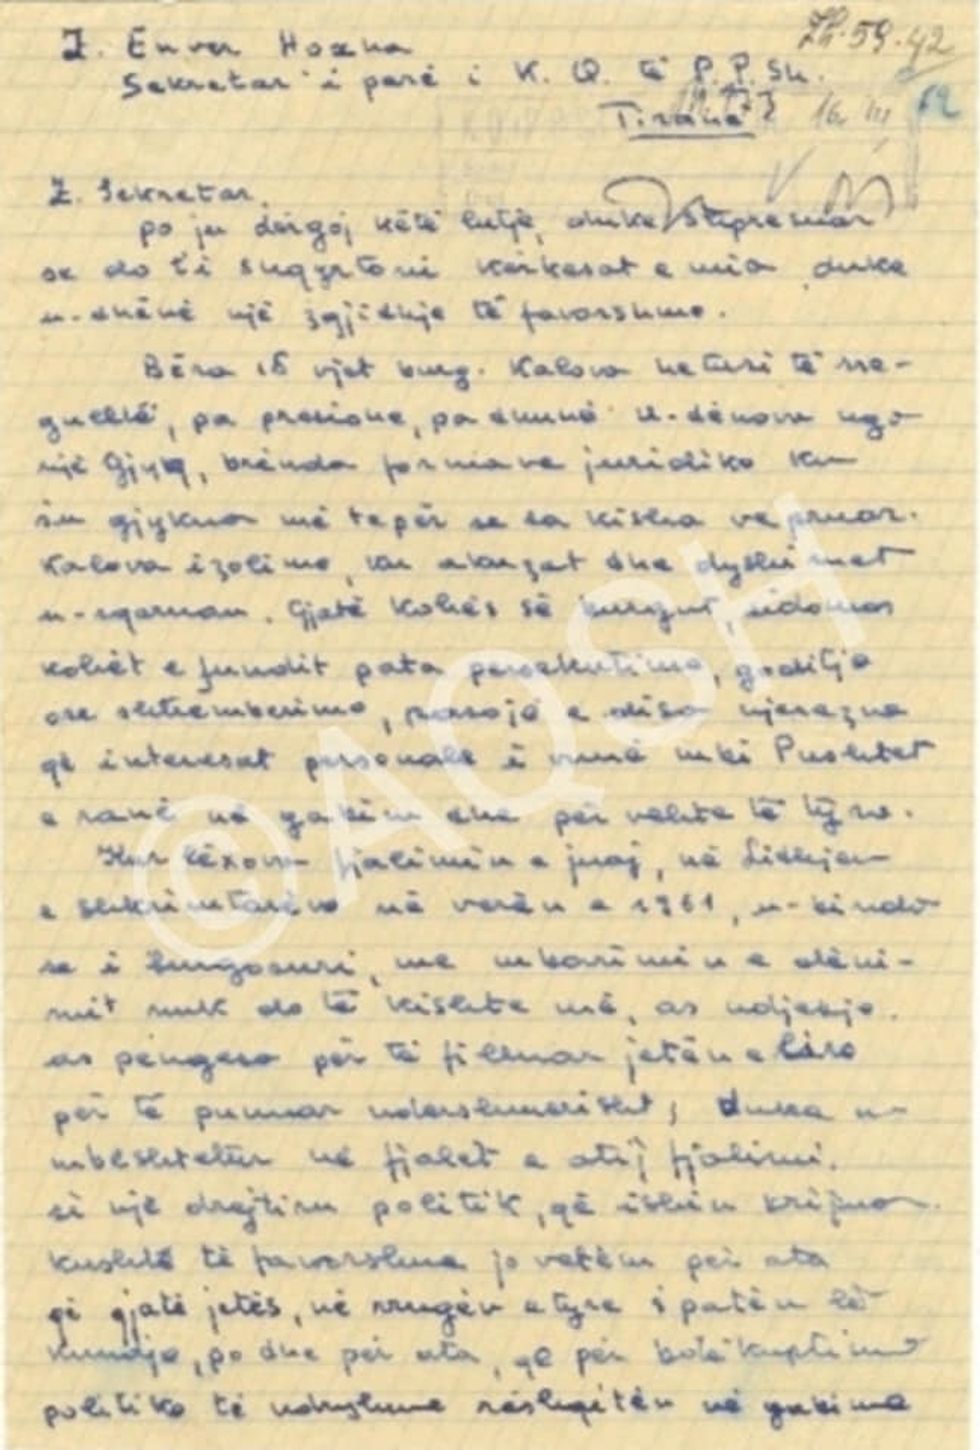 Z. Enver Hoxha
Sekretar i parë i K. Q. të P. P. Sh.
Tiranë
Zh. 59.42
16 III
Z. Sekretar,
po ju dërgoj këtë lutje, duke shpresuar
se do t'i shqyrtoni kërkesat e mia duke
u-dhënë një zgjidhje të favorshme.
Bëra 15 vjet burg. Kalova hetusi të rre-
gulltë, pa presione, pa dhunë. U-dënova nga
një Gjyq, brënda formave juridike ku
u gjykua më tepër se sa kisha vepruar.
Kalova izolime, ku akuzat dhe dyshimet
u-rqaruan. Gjatë kohës së burgut, sidomos
kohët e fundit pata persekutime, goditje
ose shtremberime, pasojë e disa njerëzve
që interesat personale i vunë mbi Pushtet
e ranë në gabim dhe për vehte të tyre.
Kur lexova fjalimin e juaj, në Lidhjen
e shkrimtarëve në verën e 1961, u-binda
se i burgosuri, me mbarimin e dëni-
mit nuk do të kishte më, as ndjekje.
as pengesa për të filluar jetën e lirë
për të punuar ndershmerisht; duke u-
mbështetur në fjalët e atij fjalimi.
si një drejtim politik, që ishin krijuar
kushtë të favorshme jo vetëm për ata
që gjatë jetës, në rrugën e tyre i patën lët
kundje, po dhe për ata, qe për botëkuptime
politike të ndryshme rrëshqitën në gabime
©AQSH